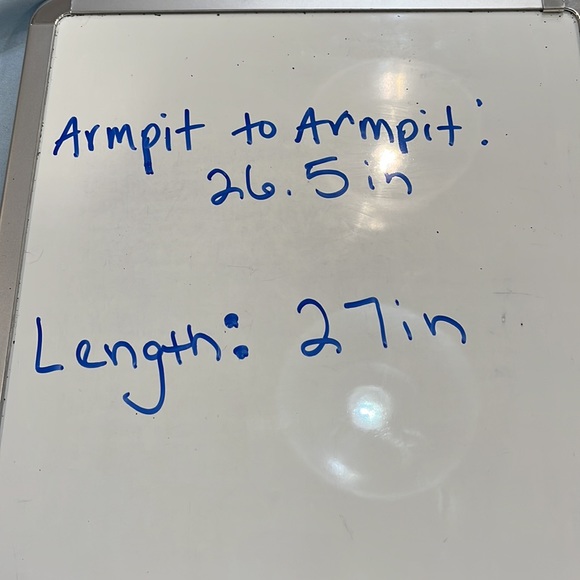 Armpit to Armpit:
26.5 in
Length: 27in